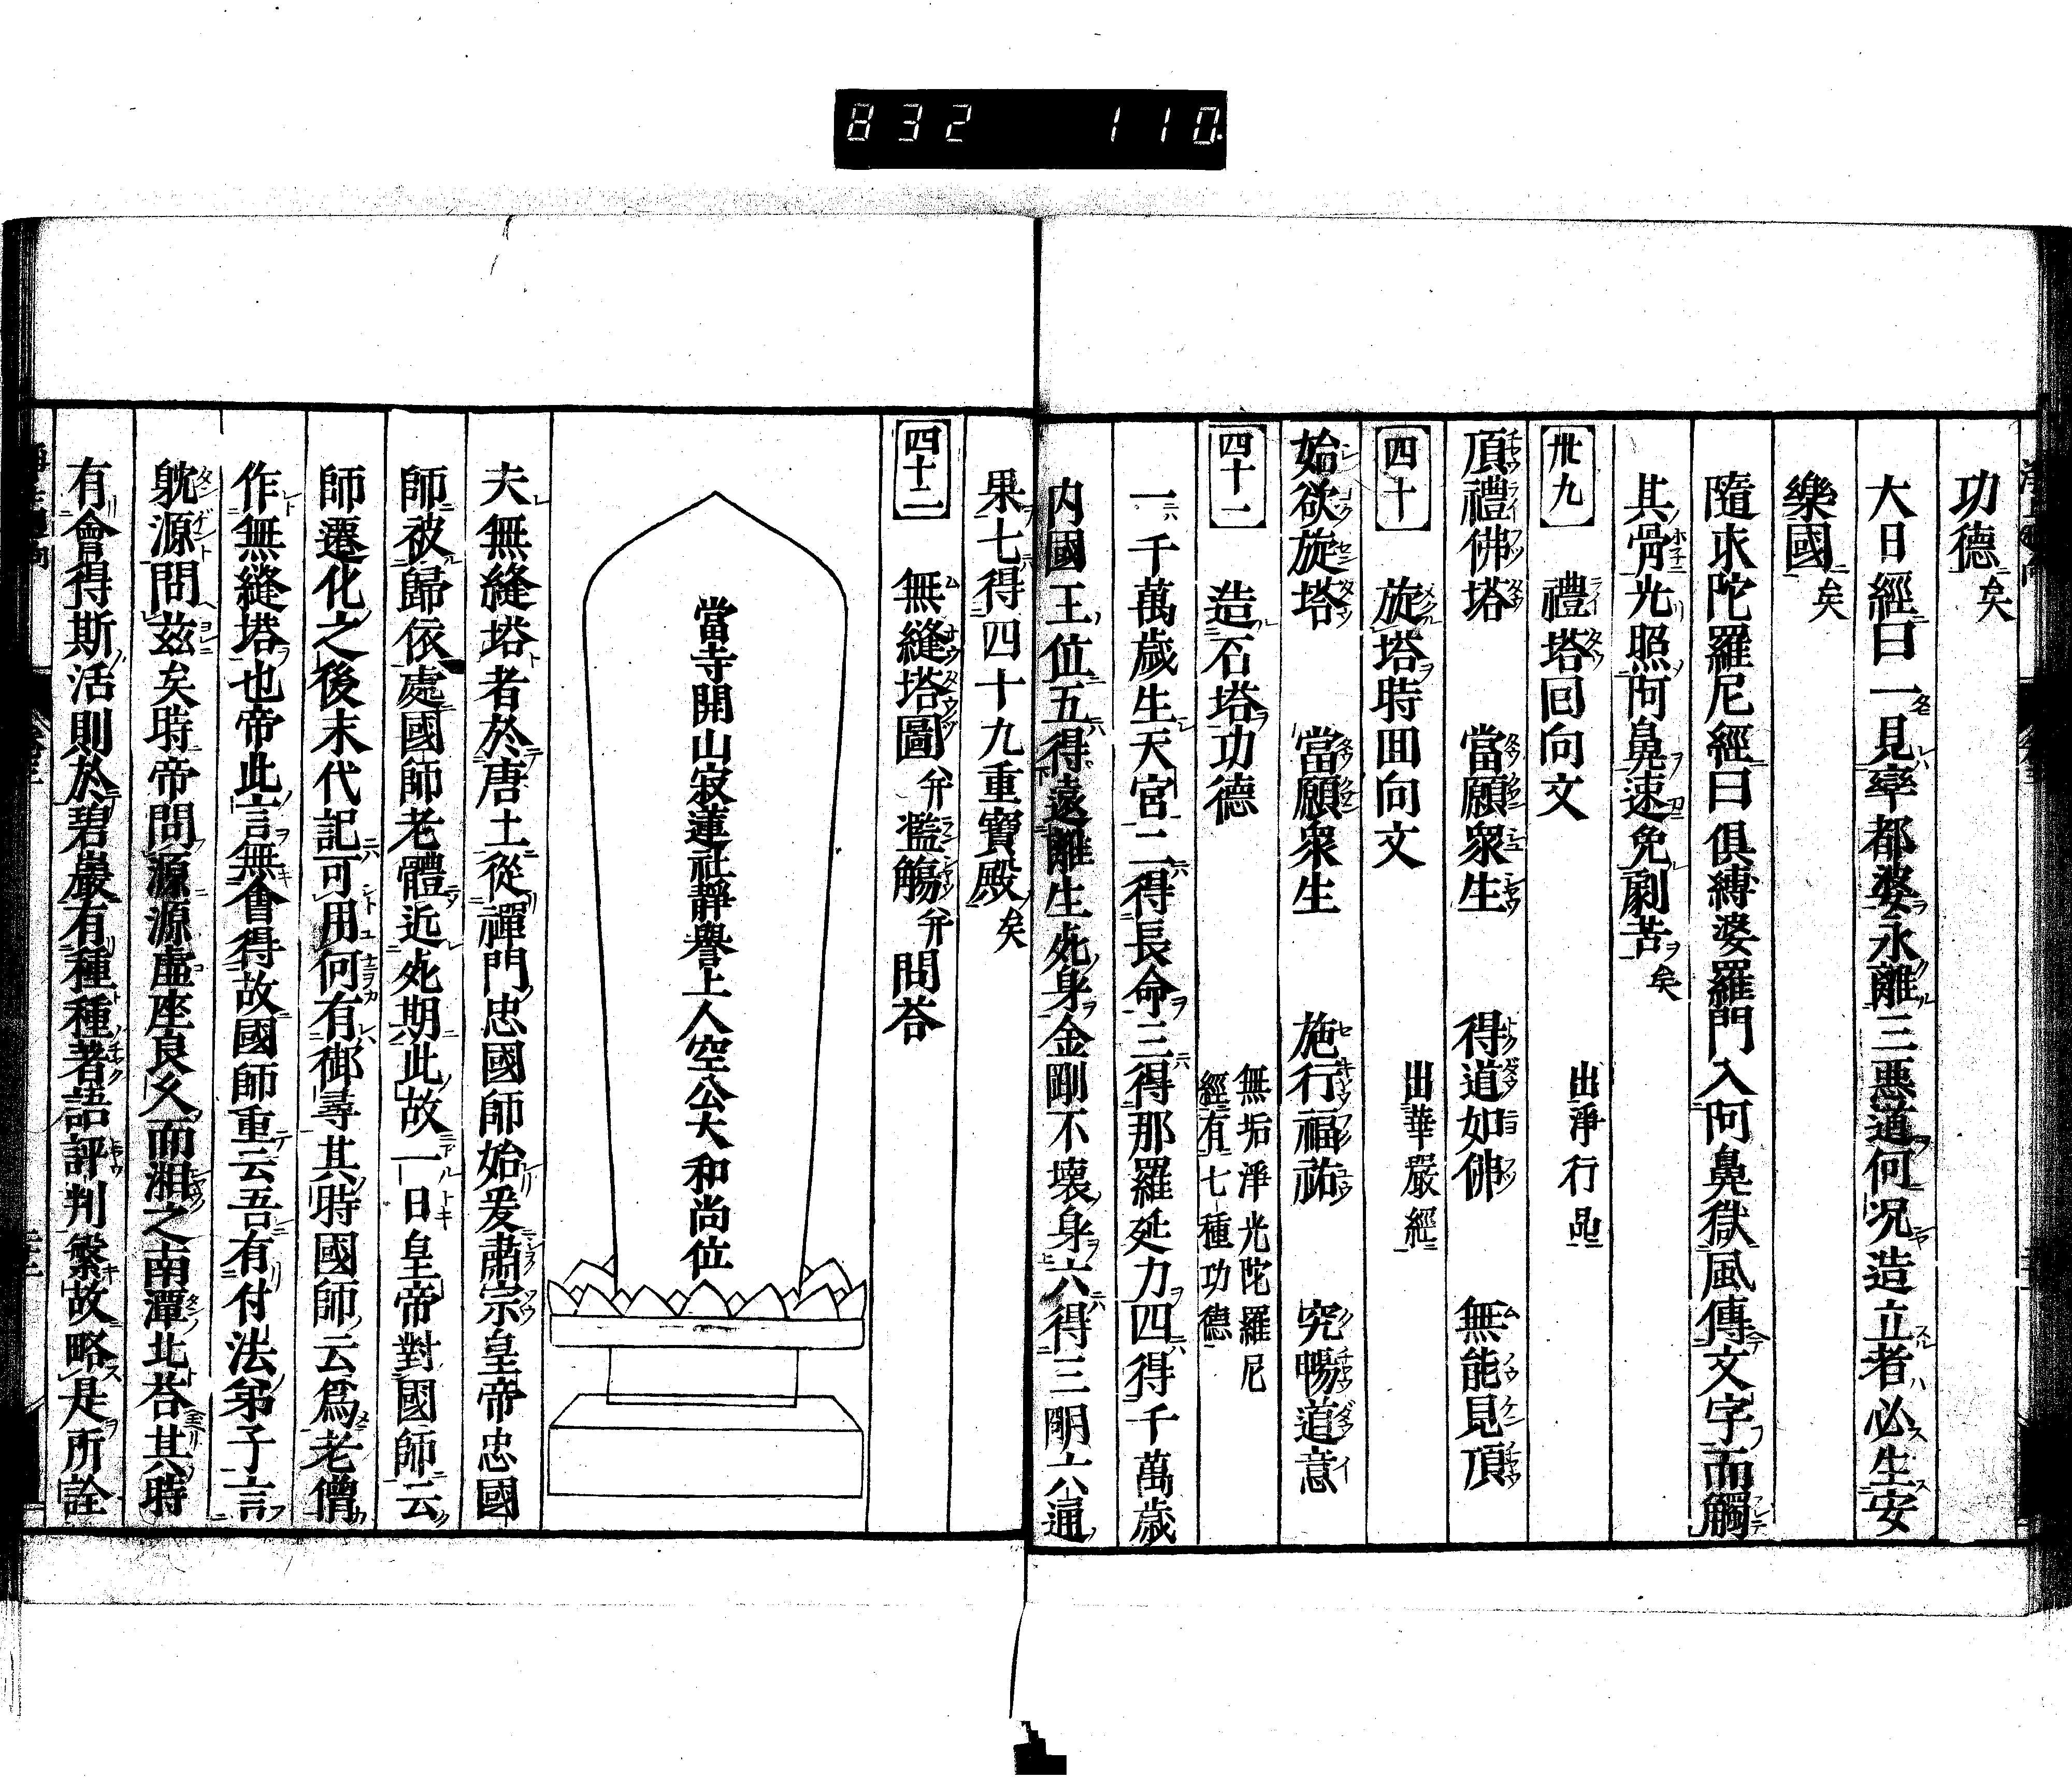 832 110
功德矣
大日經曰一見率都婆永離三悪道何況造立者必生安
樂國矣
隨求陀羅尼經曰俱縛婆羅門入阿鼻獄風傳文字而觸
其骨光照阿鼻速免劇苦矣
卅九 禮塔回向文 出淨行品
頂禮佛塔 當願衆生 得道如佛 無能見頂
四十 旋塔時回向文 出華嚴經
始欲旋塔 當願衆生 施行福祐 究暢道意
四十一 造石塔功德 無垢淨光陀羅尼
經有七種功德
一千萬歲生天宮二得長命三得那羅延力四得千萬歲
内國王位五得遠離生死身金剛不壊身六得三明六通
果七得四十九重寶殿矣
四十二 無縫塔圖弁濫觴弁問荅
當寺開山寂蓮社靜譽上人空公大和尚位
夫無縫塔者於唐土從禪門忠國師始爰肅宗皇帝忠國
師被歸依處國師老體近死期此故一日皇帝對國師云
師遷化之後末代記可用何有御尋其時國師云爲老僧
作無縫塔也帝此言無會得故國師重云吾有付法弟子言
躭源問茲矣時帝問源源虛座良久而湘之南潭北荅其時
有會得斯活則於碧巖有種種著語評判繁故略是所詮